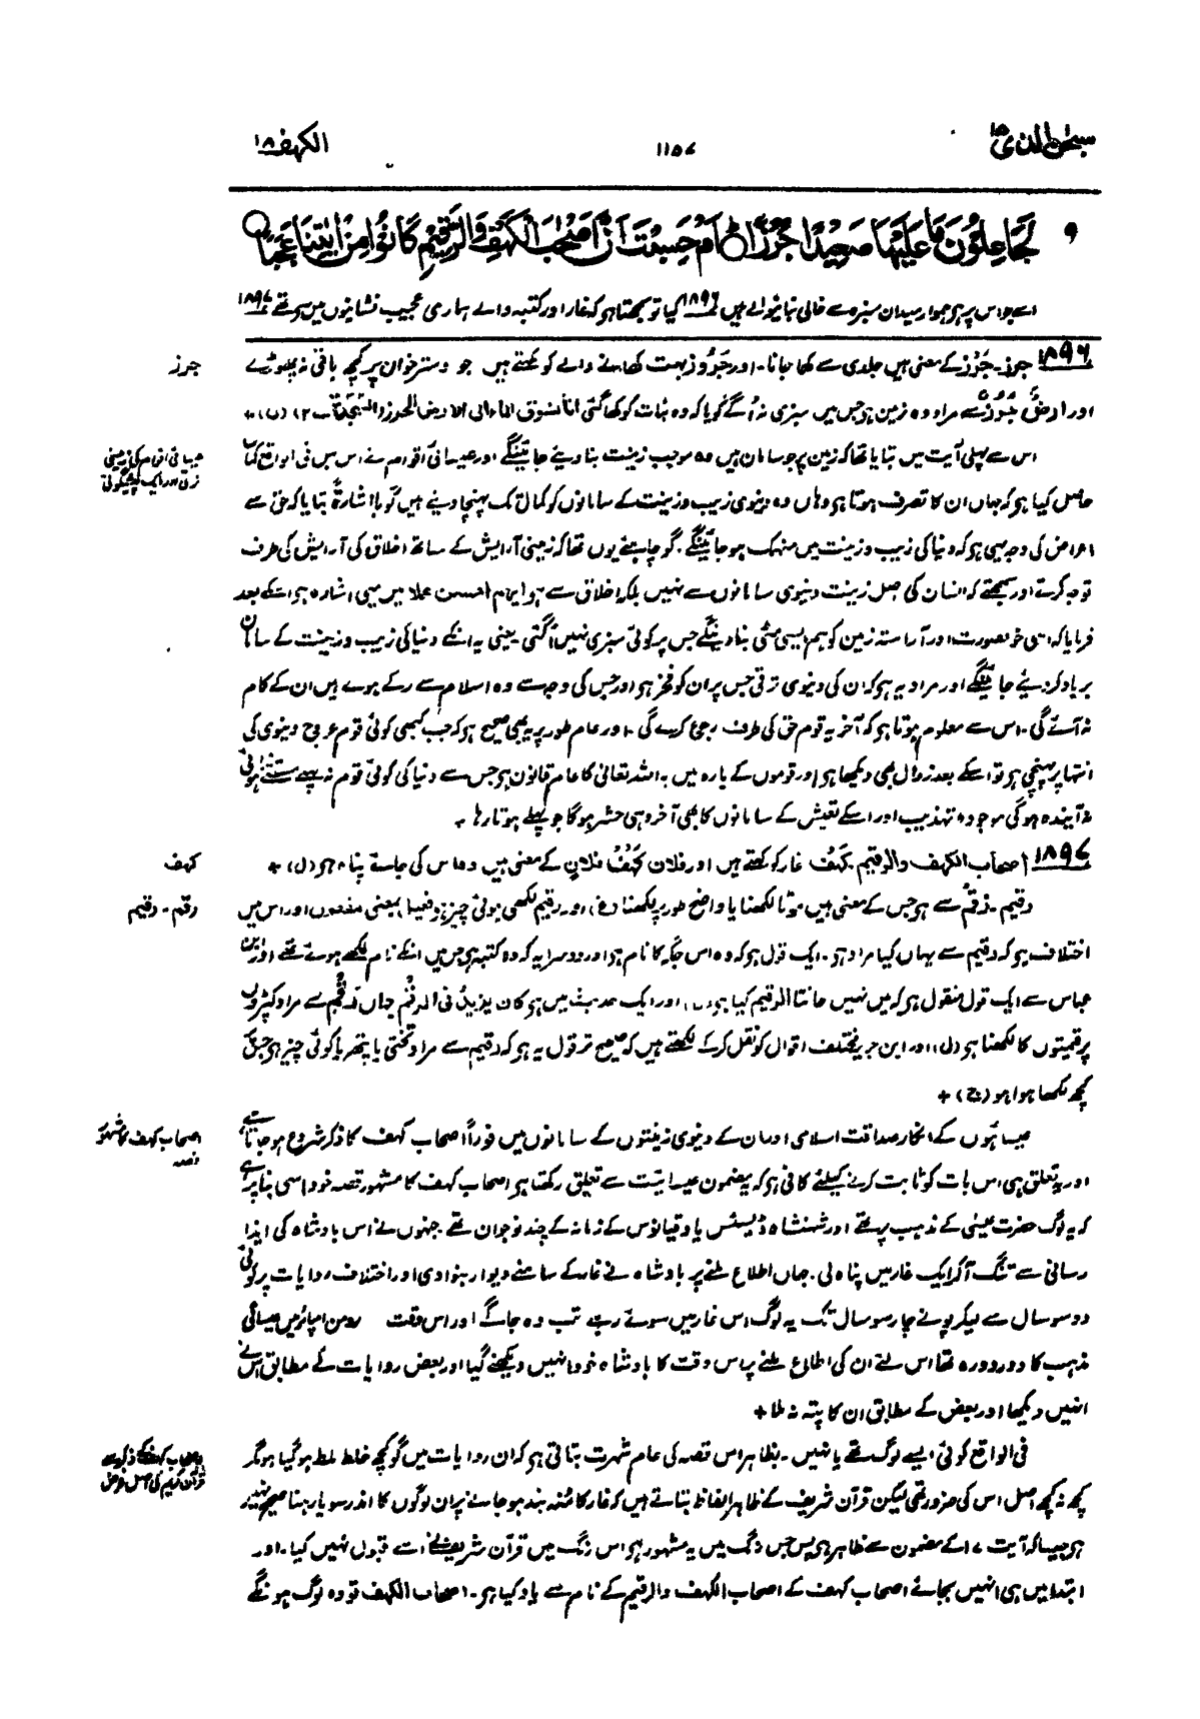 سبحٰن الذی ۱۵
۱۱۵۷
الکہف ۱۸
لَجَاعِلُوْنَ مَا عَلَیْهَا صَعِیْدًا جُرُزًا اَمْ حَسِبْتَ اَنَّ اَصْحٰبَ الْكَهْفِ وَالرَّقِیْمِ كَانُوْا مِنْ اٰیٰتِنَا عَجَبًا
اسے جو اس پر ہے ہموار میدان سبزہ سے خالی بنانیوالے ہیں ۱۸۹۶ کیا تو سمجھتا ہو کہ غار اور کتبہ والے ہماری عجیب نشانیوں میں سے تھے ۱۸۹۷
۱۸۹۶ جرز۔ جَرْز کے معنی ہیں جلدی سے کھا جانا۔ اور جَرُوز بہت کھانے والے کو کہتے ہیں جو دسترخوان پر کچھ باقی نہ چھوڑے
جرز
اور ارض جُرُزٌ سے مراد وہ زمین ہو جس میں سبزی نہ اُگے گویا کہ وہ نبات کو کھا گئی انا نسوق الماء الی الارض الجرز (السجدۃ ۔ ۲۷) (ل) +
اس سے پہلی آیت میں بتایا تھا کہ زمین پر جو سامان ہیں وہ موجب زینت بنا دیئے جائینگے اور عیسائی اقوام نے اس میں فی الواقع کمال
حاصل کیا ہو کہ جہاں ان کا تصرف ہوتا ہو وہاں وہ دنیوی زیب و زینت کے سامانوں کو کمال تک پہنچا دیتے ہیں گویا اشارۃً بتایا کہ حق سے
اعراض کی وجہ یہی ہو کہ دنیا کی زیب و زینت میں منہمک ہو جائینگے۔ گو چاہئے یوں تھا کہ زمینی آرایش کے ساتھ اخلاق کی آرایش کی طرف
توجہ کرتے اور سمجھتے کہ انسان کی اصل زینت دنیوی سامانوں سے نہیں بلکہ اخلاق سے ہو ایہم احسن عملا میں یہی اشارہ ہو اسکے بعد
فرمایا کہ اسی خوبصورت اور آراستہ زمین کو ہم ایسی مٹی بنا دینگے جس پر کوئی سبزی نہیں اُگتی یعنی یہ انکے دنیا کی زیب و زینت کے سامان
برباد کر دیئے جائینگے اور مراد یہ ہو کہ ان کی دنیوی ترقی جس پر ان کو فخر ہو اور جس کی وجہ سے وہ اسلام سے رکے ہوئے ہیں ان کے کام
نہ آئے گی۔ اس سے معلوم ہوتا ہو کہ آخر یہ قوم حق کی طرف رجوع کرے گی۔ اور عام طور پر یہ بھی صحیح ہو کہ جب کبھی کوئی قوم عروج دنیوی کی
انتہا پر پہنچی ہو تو اسکے بعد زوال بھی دیکھا ہو اور قوموں کے بارہ میں یہ اللہ تعالیٰ کا عام قانون ہو جس سے دنیا کی کوئی قوم نہ پہلے مستثنیٰ ہوئی
نہ آیندہ ہو گی موجودہ تہذیب اور اسکے تعیش کے سامانوں کا بھی آخر وہی حشر ہوگا جو پہلے ہوتا رہا۔
۱۸۹۷ اصحاب الکہف والرقیم۔ کَہْف غار کو کہتے ہیں اور فلان کَہْفُ فلانٍ کے معنی ہیں وہ اس کی جائے پناہ ہو (ل) +
کہف
رقیم۔ رَقْم سے ہو جس کے معنی ہیں موٹا لکھنا یا واضح طور پر لکھنا (غ)، اور رقیم لکھی ہوئی چیز ہو فعیل بمعنی مفعول اور اس میں
رقم۔ رقیم
اختلاف ہو کہ رقیم سے یہاں کیا مراد ہو۔ ایک قول ہو کہ وہ اس جگہ کا نام ہو اور دوسرا یہ کہ وہ کتبہ ہو جس میں انکے نام لکھے ہوئے تھے اور ابن
عباس سے ایک قول منقول ہو کہ میں نہیں جانتا الرقیم کیا ہو (ل)، اور ایک حدیث میں ہو کان یزید فی الرقم جہاں رقم سے مراد کپڑوں
پر قیمتوں کا لکھنا ہو (ل)، اور ابن جریر مختلف اقوال کو نقل کر کے لکھتے ہیں کہ صحیح تر قول یہ ہو کہ رقیم سے مراد تختی یا پتھر یا کوئی چیز ہو جس پر
کچھ لکھا ہوا ہو (ج) +
عیسائیوں کے انکار صداقت اسلامی اور ان کے دنیوی زینتوں کے سامانوں میں فوراً اصحاب کہف کا ذکر شروع ہو جاتا ہے
اور یہ تعلق ہی اس بات کو ثابت کرنے کیلئے کافی ہو کہ یہ مضمون عیسائیت سے تعلق رکھتا ہو اصحاب کہف کا مشہور قصہ خود اسی بنا پر ہے
کہ یہ لوگ حضرت عیسیٰ کے مذہب پر تھے اور شہنشاہ ڈیسئس یا دقیانوس کے زمانہ کے چند نوجوان تھے جنہوں نے اس بادشاہ کی ایذا
رسانی سے تنگ آ کر ایک غار میں پناہ لی۔ جہاں اطلاع ملنے پر بادشاہ نے غار کے سامنے دیوار بنوا دی اور اختلاف روایات پر کوئی
دو سو سال سے لیکر پونے چار سو سال تک یہ لوگ اس غار میں سوتے رہے تب وہ جاگے اور اس وقت رومن امپائر میں عیسائی
مذہب کا دور دورہ تھا اس لئے ان کی اطلاع ملنے پر اس وقت کا بادشاہ خود انہیں دیکھنے گیا اور بعض روایات کے مطابق اس نے
انہیں دیکھا اور بعض کے مطابق ان کا پتہ نہ ملا +
فی الواقع کوئی ایسے لوگ تھے یا نہیں۔ بظاہر اس قصہ کی عام شہرت بتاتی ہو کہ ان روایات میں گو کچھ خلط ملط ہو گیا ہو مگر
کچھ نہ کچھ اصل اس کی ضرور تھی لیکن قرآن شریف کے ظاہر الفاظ بتاتے ہیں کہ غار کا منہ بند ہو جانے پر ان لوگوں کا اندر سویا رہنا صحیح نہیں
ہو جیسا کہ آیت ۱۷ کے مضمون سے ظاہر ہو پس جس رنگ میں یہ مشہور ہو اس رنگ میں قرآن شریف نے اسے قبول نہیں کیا۔ اور
ابتدا میں ہی انہیں بجائے اصحاب کہف کے اصحاب الکہف والرقیم کے نام سے یاد کیا ہو۔ اصحاب الکہف تو وہ لوگ ہونگے